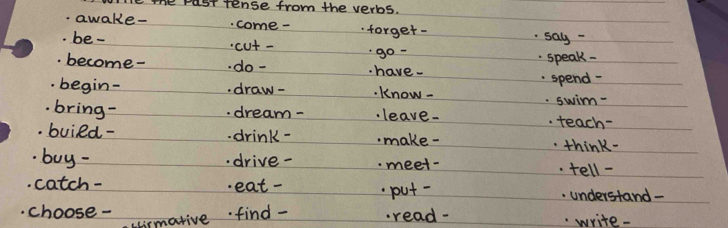 the Past tense from the verbs.
· awake -
· be -
· become -
· begin -
· bring -
· build -
· buy -
· catch -
· choose -
· come -
· cut -
· do -
· draw -
· dream -
· drink -
· drive -
· eat -
· find -
· forget -
· go -
· have -
· know -
· leave -
· make -
· meet -
· put -
· read -
· say -
· speak -
· spend -
· swim -
· teach -
· think -
· tell -
· understand -
· write -